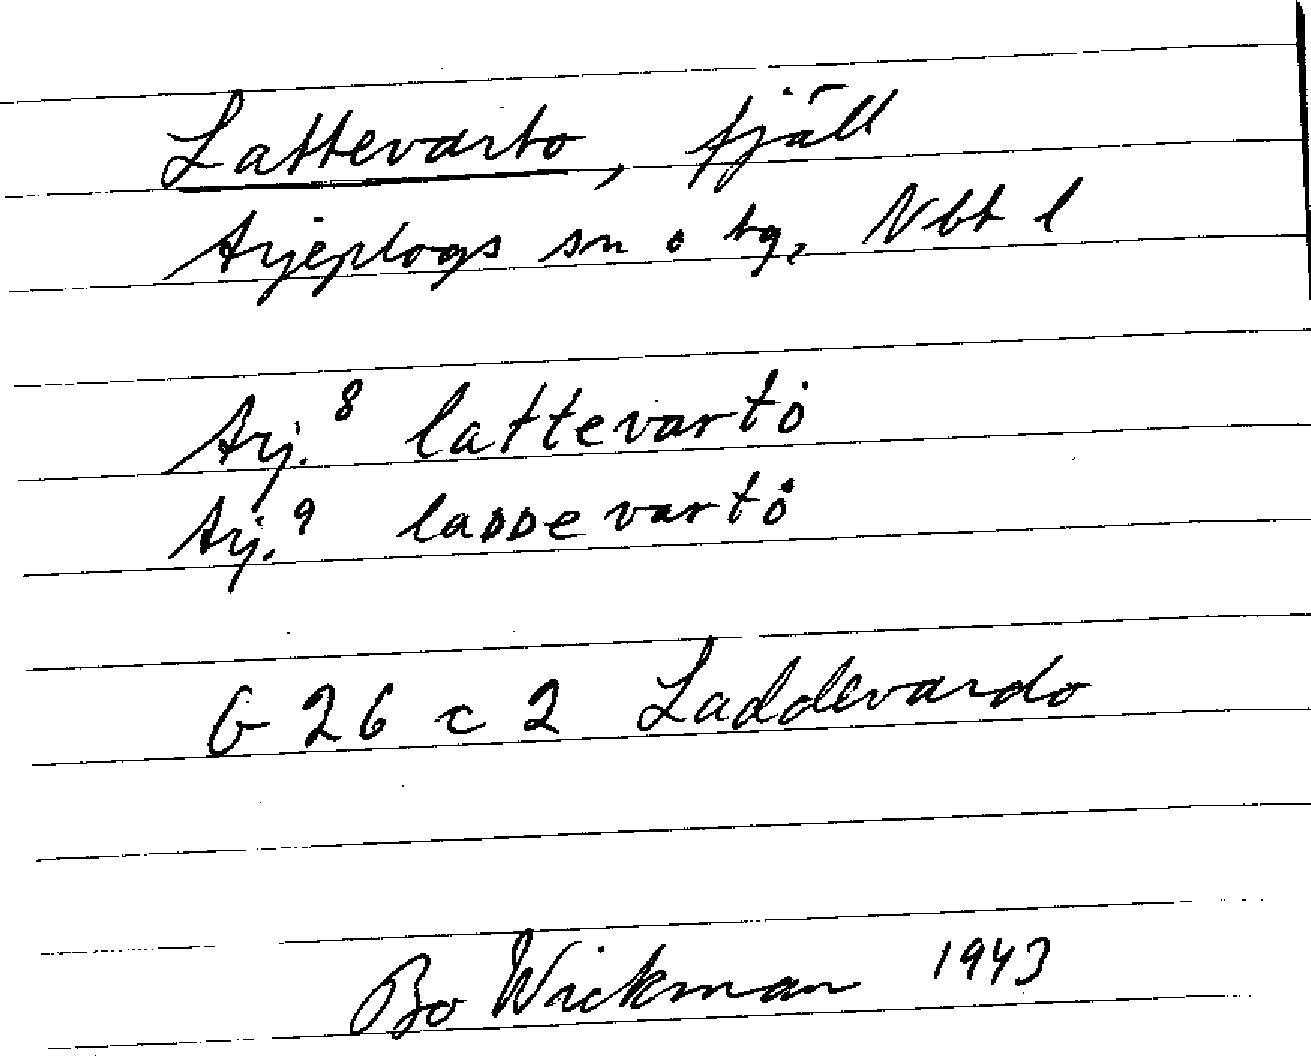 Lattevarto, fjäll
Arjeplogs sn o tg, Nbt l
Arj.⁸ lattevartȯ
Arj.⁹ laᴅᴅevartȯ
G 26 c 2 Laddevardo
Bo Wickman 1943